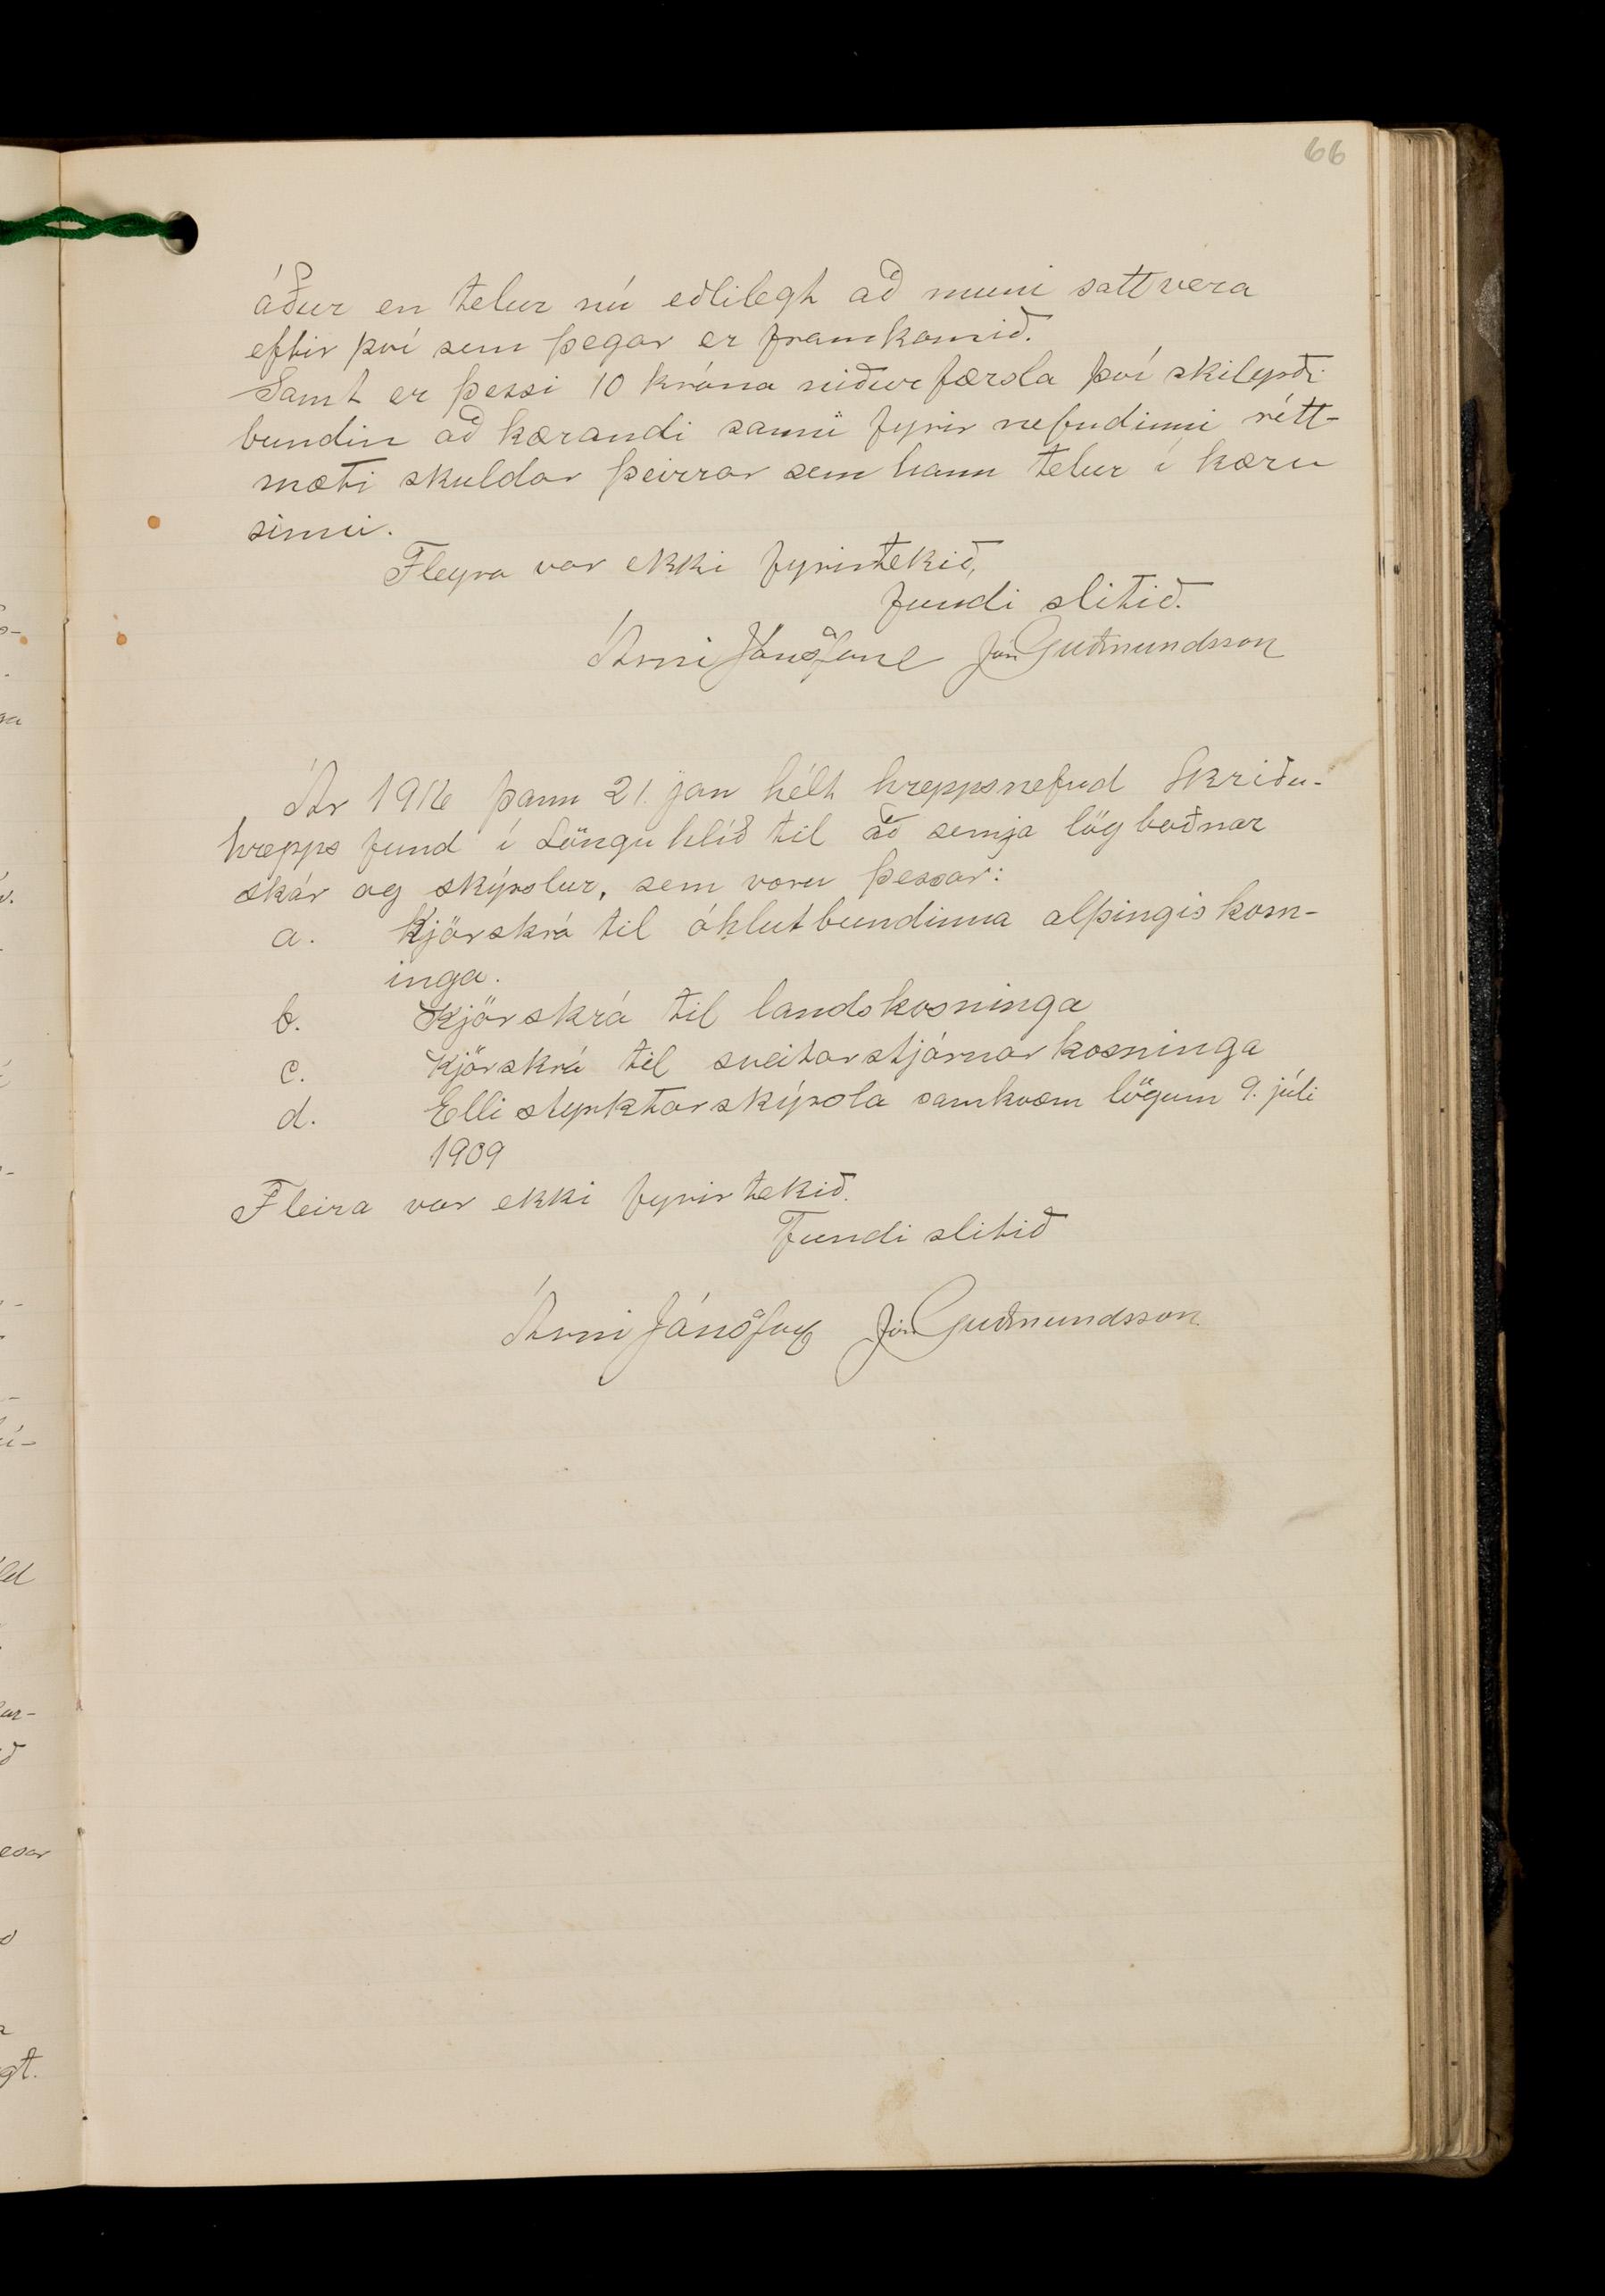 66
áður en telur nú eðlilegt að muni satt vera
eftir því sem þegar er framkomið.
Samt er þessi 10 króna niðurfærsla því skilyrði
bundin að kærandi sanni fyrir nefndinni rétt-
mæti skuldar þeirrar sem hann telur í kæru
sinni.
Fleyra var ekki fyrirtekið,
fundi slitið.
Árni Jónsson Jón Guðmundsson
Ár 1916 þann 21. jan hélt hreppsnefnd Skriðu-
hrepps fund í Lönguhlíð til að semja lögboðnar
skár og skýrslur, sem voru þessar:
a. Kjörskrá til óhlutbundinna alþingiskosn-
inga.
b. Kjörskrá til landskosninga
c. Kjörskrá til sveitarstjórnarkosninga
d. Ellistyrktarskýrsla samkvæm lögum 9. júli
1909
Fleira var ekki fyrirtekið.
Fundi slitið
Árni Jónsson Jón Guðmundsson